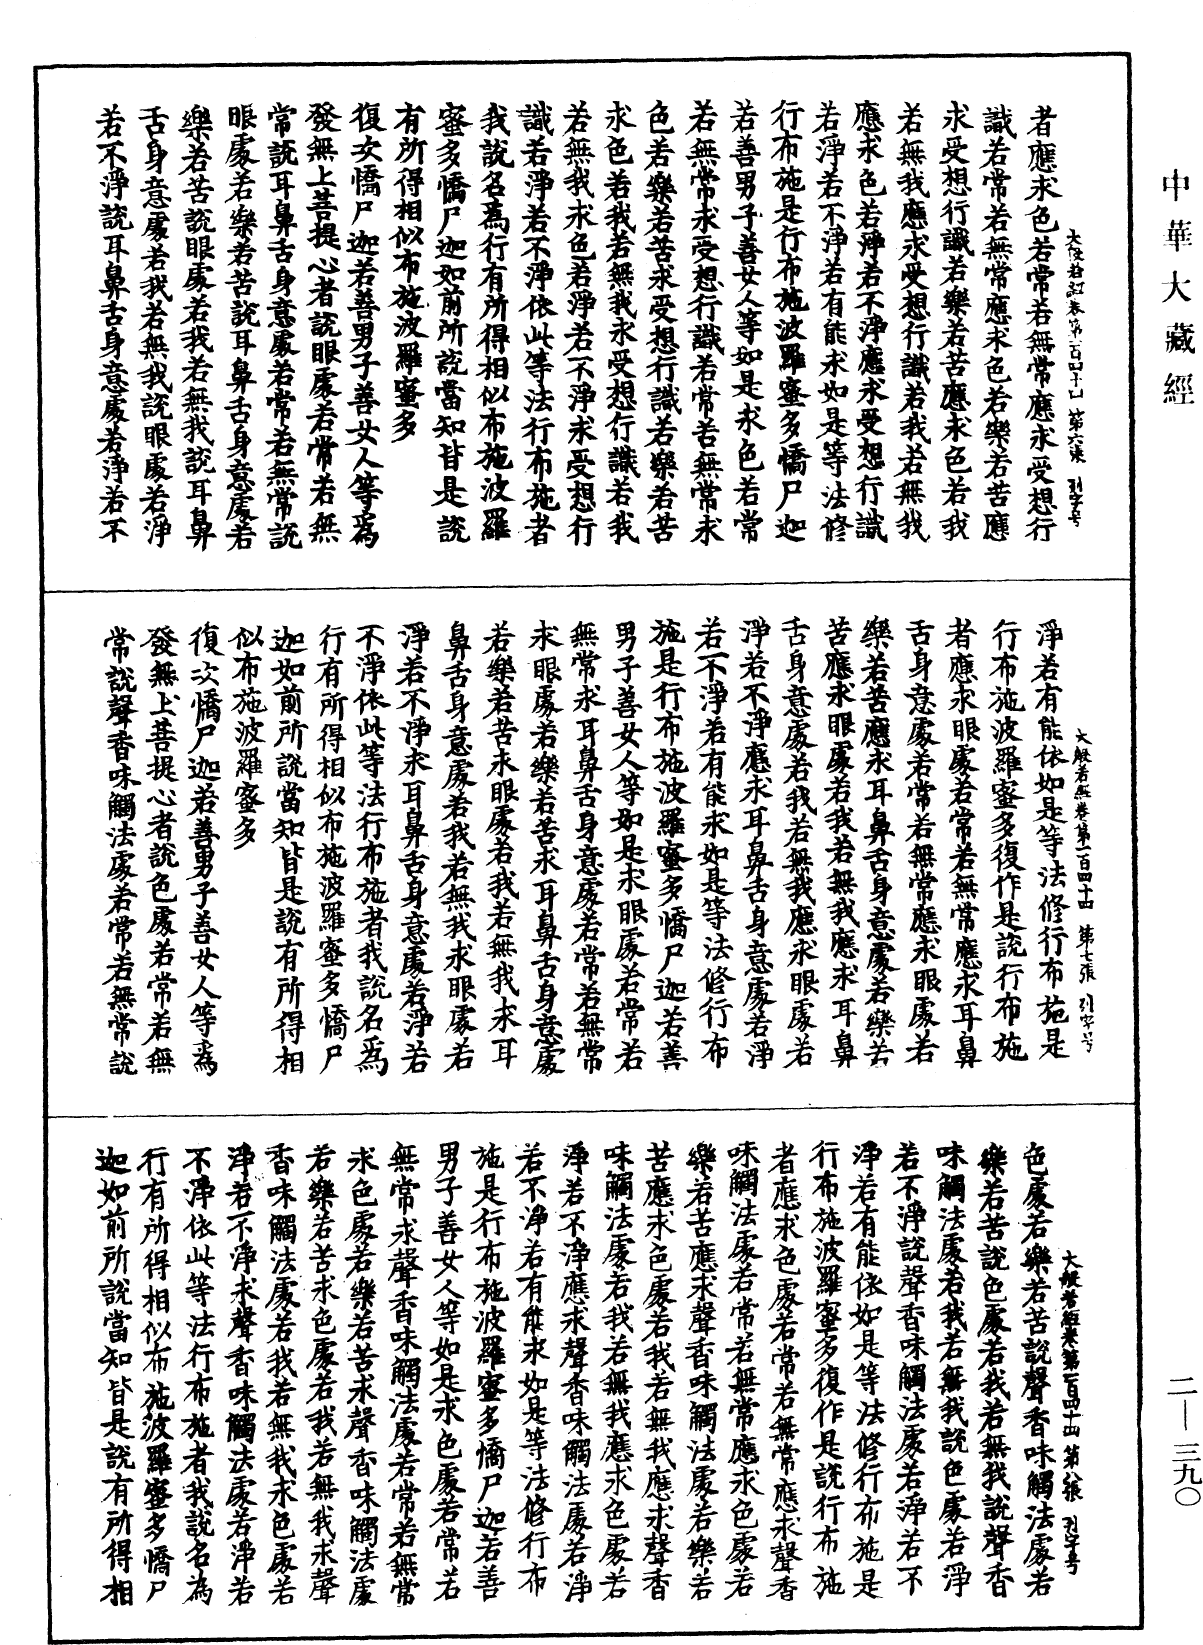 中華大藏經
者應求色若常若無常應求受想行
識若常若無常應求色若樂若苦應
求受想行識若樂若苦應求色若我
若無我應求受想行識若我若無我
應求色若淨若不淨應求受想行識
若淨若不淨若有能求如是等法修
行布施是行布施波羅蜜多憍尸迦
若善男子善女人等如是求色若常
若無常求受想行識若常若無常求
色若樂若苦求受想行識若樂若苦
求色若我若無我求受想行識若我
若無我求色若淨若不淨求受想行
識若淨若不淨依此等法行布施者
我說名為行有所得相似布施波羅
蜜多憍尸迦如前所說當知皆是說
有所得相似布施波羅蜜多
復次憍尸迦若善男子善女人等為
發無上菩提心者說眼處若常若無
常說耳鼻舌身意處若常若無常說
眼處若樂若苦說耳鼻舌身意處若
樂若苦說眼處若我若無我說耳鼻
舌身意處若我若無我說眼處若淨
若不淨說耳鼻舌身意處若淨若不
大般若經卷第一百四十四 第七張 列字号
淨若有能依如是等法修行布施是
行布施波羅蜜多復作是說行布施
者應求眼處若常若無常應求耳鼻
舌身意處若常若無常應求眼處若
樂若苦應求耳鼻舌身意處若樂若
苦應求眼處若我若無我應求耳鼻
舌身意處若我若無我應求眼處若
淨若不淨應求耳鼻舌身意處若淨
若不淨若有能求如是等法修行布
施是行布施波羅蜜多憍尸迦若善
男子善女人等如是求眼處若常若
無常求耳鼻舌身意處若常若無常
求眼處若樂若苦求耳鼻舌身意處
若樂若苦求眼處若我若無我求耳
鼻舌身意處若我若無我求眼處若
淨若不淨求耳鼻舌身意處若淨若
不淨依此等法行布施者我說名為
行有所得相似布施波羅蜜多憍尸
迦如前所說當知皆是說有所得相
似布施波羅蜜多
復次憍尸迦若善男子善女人等為
發無上菩提心者說色處若常若無
常說聲香味觸法處若常若無常說
大般若經卷第一百四十四 第八張 列字号
色處若樂若苦說聲香味觸法處若
樂若苦說色處若我若無我說聲香
味觸法處若我若無我說色處若淨
若不淨說聲香味觸法處若淨若不
淨若有能依如是等法修行布施是
行布施波羅蜜多復作是說行布施
者應求色處若常若無常應求聲香
味觸法處若常若無常應求色處若
樂若苦應求聲香味觸法處若樂若
苦應求色處若我若無我應求聲香
味觸法處若我若無我應求色處若
淨若不淨應求聲香味觸法處若淨
若不淨若有能求如是等法修行布
施是行布施波羅蜜多憍尸迦若善
男子善女人等如是求色處若常若
無常求聲香味觸法處若常若無常
求色處若樂若苦求聲香味觸法處
若樂若苦求色處若我若無我求聲
香味觸法處若我若無我求色處若
淨若不淨求聲香味觸法處若淨若
不淨依此等法行布施者我說名為
行有所得相似布施波羅蜜多憍尸
迦如前所說當知皆是說有所得相
二—三九〇